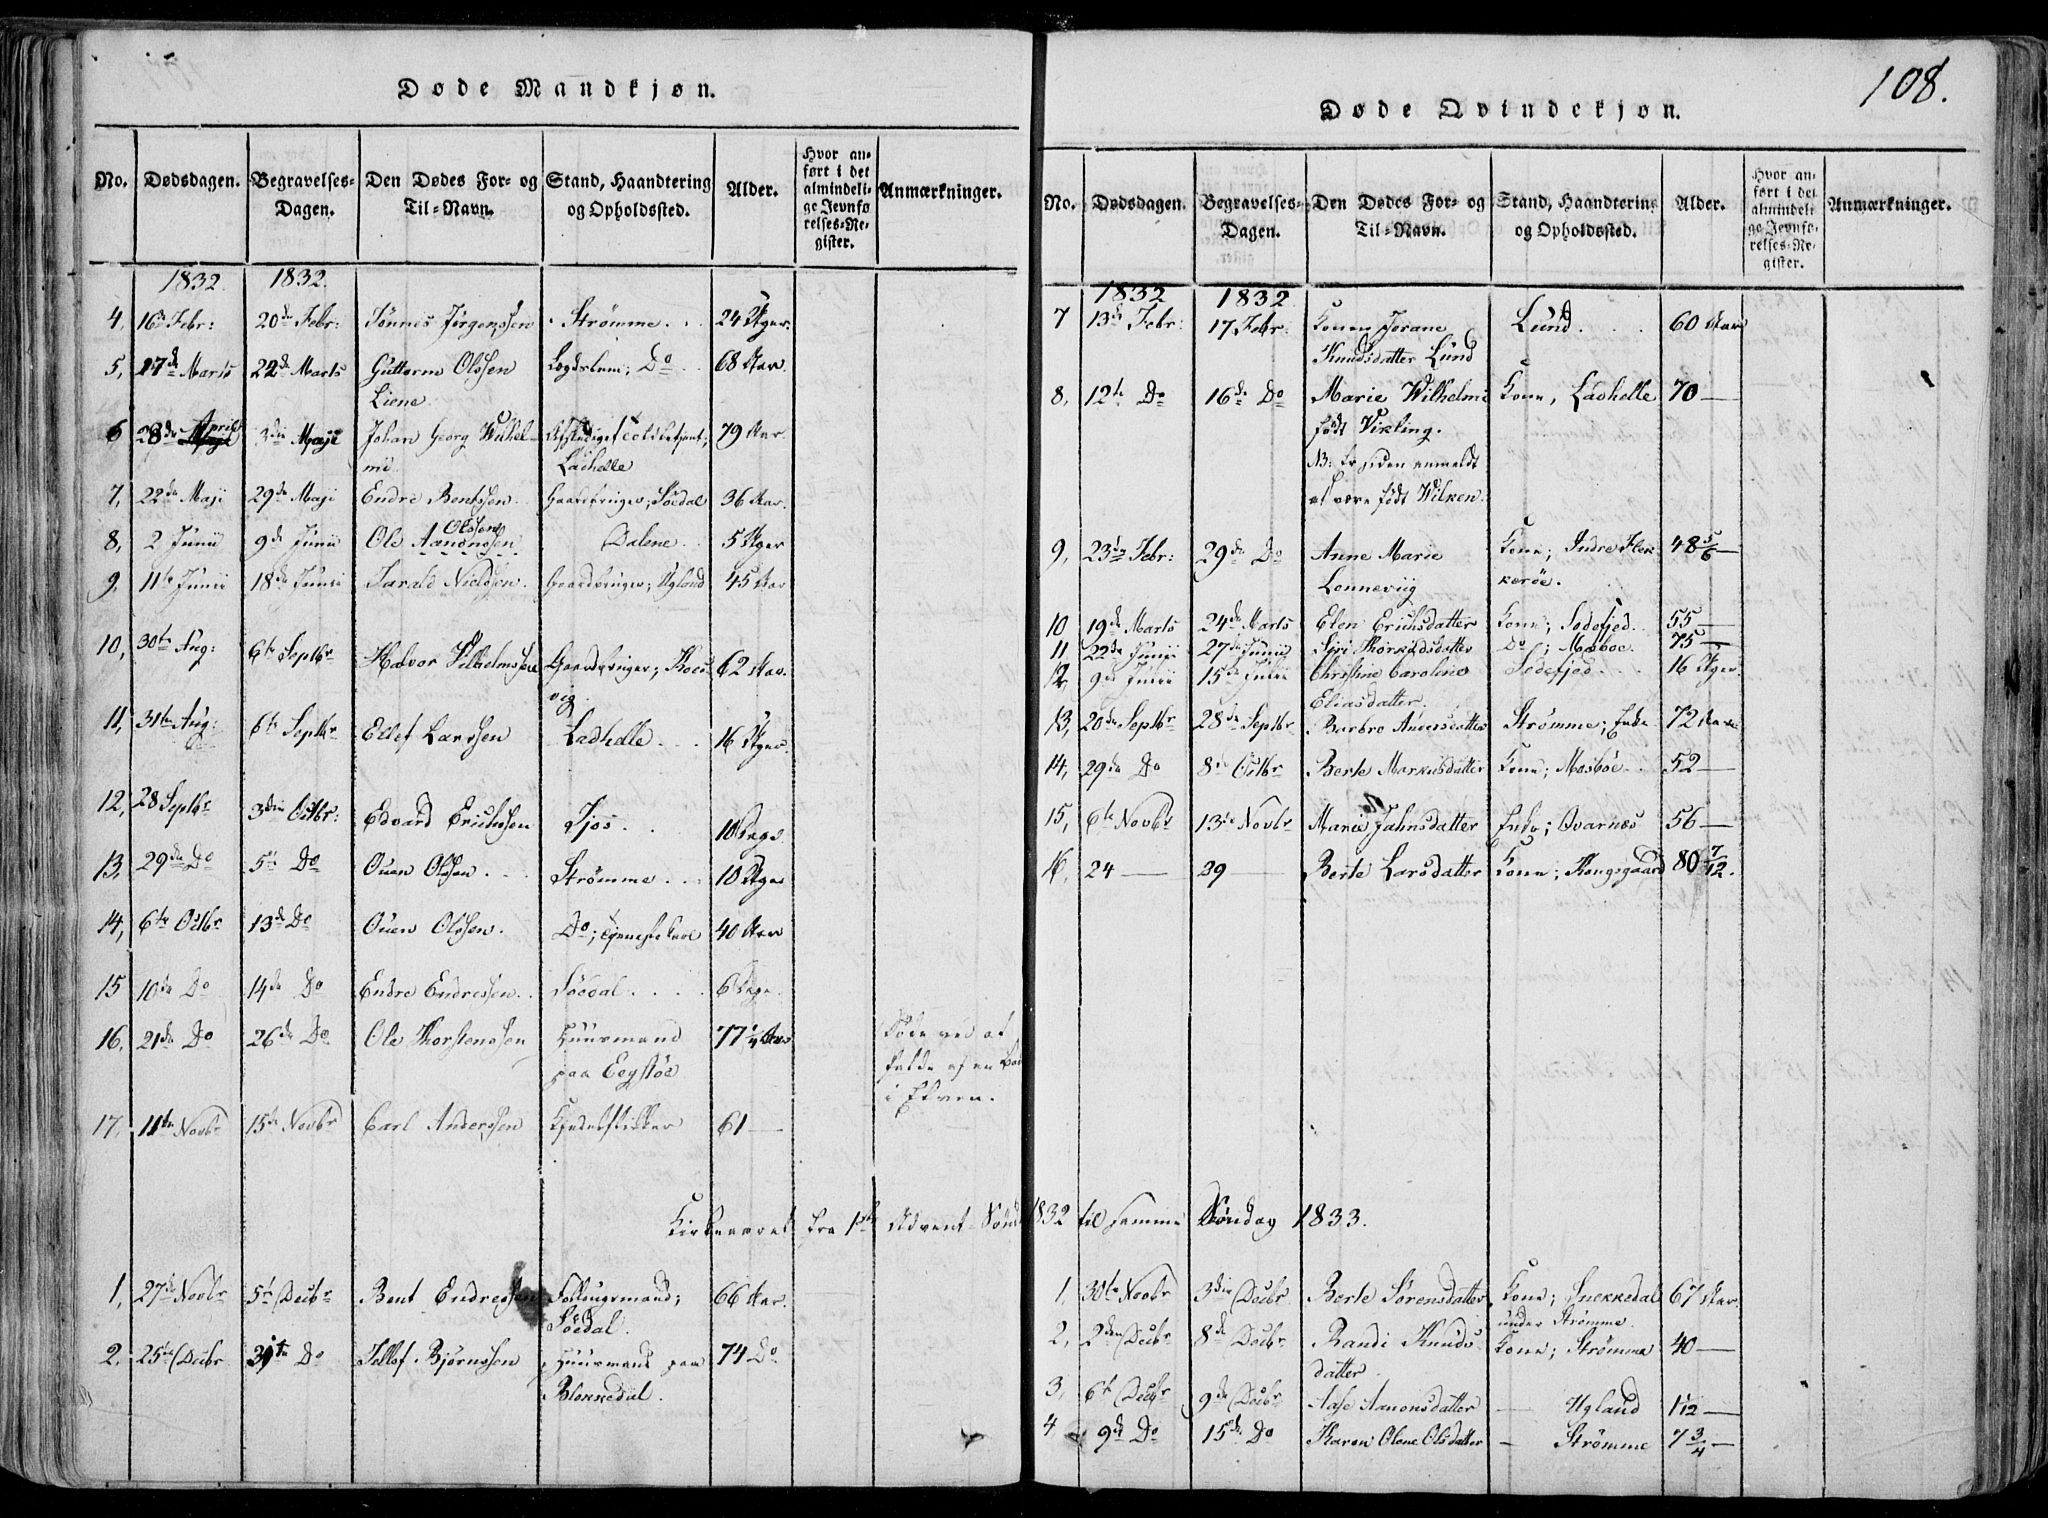 Døde Mandkjøn.
No. Dødsdagen. Begravelses-Dagen. Den Dødes For- og Til-Navn. Stand, Haandtering og Opholdssted. Alder. Hvor anført i det almindelige Jevnførelses-Register. Anmærkninger.
1832. 1832.
4, 16de Febr: 20de Febr: Tønnes Jørgenssen Strømme 24 Uger.
5, 17de Marts 22de Marts Guttorm Olssen Liene Logdslem; Do 68 Aar.
6 28de April 3die Maji Johan Georg Wilhelmi Ladhelle 79 Aar.
7, 22de Maji 29de Maji Endre Bentssen Gaardbruger; Söedal 36 Aar.
8, 2 Junii 9de Junii Ole Olssen Dalene 5 Uger
9, 11te Junii 18de Junii Tarald Nielssen Gaardbruger; Ugland 45 Aar
10, 30te Aug: 6te Septbr Halvor Vilhelmssen Gaardbruger; Roesvig 62 Aar.
11, 31te Aug: 6te Septbr Ellef Larssen Ladhelle 16 Uger.
12, 28 Septbr 3die Octbr: Edvard Erichssen Tjos 10 Dage
13, 29de Do 5te Do Ouen Olssen Strømme 10 Uger
14, 6te Octbr 13de Do Ouen Olssen. Do; tjeneste karl 40 Aar
15 10de Do 14de Do Endre Endressen Söedal 6 Dage
16, 21de Do 26de Do Ole Thorstenssen Huusmand paa Eegstöe 77 1/4 Aar Døde ved at falde af en Baad i Elven.
17, 11te Novbr 15de Novbr Carl Anderssen Kjedelflikker 61 —
Kirkeaaret fra 1ste Advent-Sønd 1832 til samme Søndag 1833.
1, 27de Novbr 5te Decbr Bent Endressen Follaugsmand; Söedal. 66 Aar.
2, 25te Decbr 31te Do Tellef Bjørnssen Huusmand paa Blekkedal. 74 Do
108.
Døde Qvindekjøn.
No. Dødsdagen. Begravelses-Dagen. Den Dødes For- og Til-Navn. Stand, Haandtering og Opholdssted. Alder. Hvor anført i det almindelige Jevnførelses-Register. Anmærkninger.
1832 1832
7 13de Febr: 17 Febr: Konen Jorane Knudsdatter Lund Lund 60 Aar
8, 12te Do 16de Do Marie Wilhelmi født Vikling. NB: Er siden anmeldt at være født Wilken. Kone, Ladhelle 70 —
9, 23de Febr: 29de Do Anne Marie Lonneviig Kone; Indre Flekkerøe. 48 5/6 —
10 19de Marts 24de Marts Elen Erichsdatter Kone; Sodefjed 55 —
11, 22de Junii 27de Junii Siri Thorkildsdatter Do; Mosboe 75 —
12, 9de Julii 15de Julii Christine Caroline Eliasdatter Sodefjed 16 Uger
13, 20de Septbr 28de Septbr Barbro Andersdatter Strømme; Enke 72 Aar
14, 29de Do 8de Octbr Berte Markusdatter Kone; Mosbøe 52 —
15, 6te Novbr 13te Novbr Marie Jahnsdatter Enke; Qvarnes 56 —
16, 24 — 29 — Berte Larsdatter Kone; Kongsgaard 80 7/12.
1, 30te Novbr 3die Decbr Berte Sørensdatter Kone; Snekkedal under Strømme 67 Aar.
2, 2den Decbr 8de Decbr Randi Knudsdatter Kone; Strømme 40 —
3, 6te Decbr 9de Decbr Aase Aanonsdatter — Ugland 1 1/12 —
4 9de Do 15de Do Karen Olene Olsdatter — Strømme 7 3/4 —